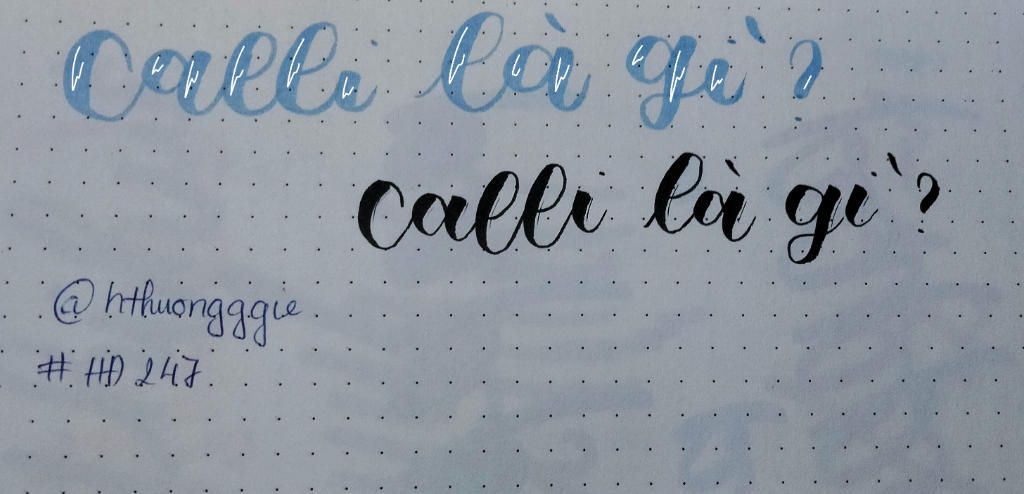 Calli là gì ?
Calli là gì ?
@hthuongggie
# HD 247